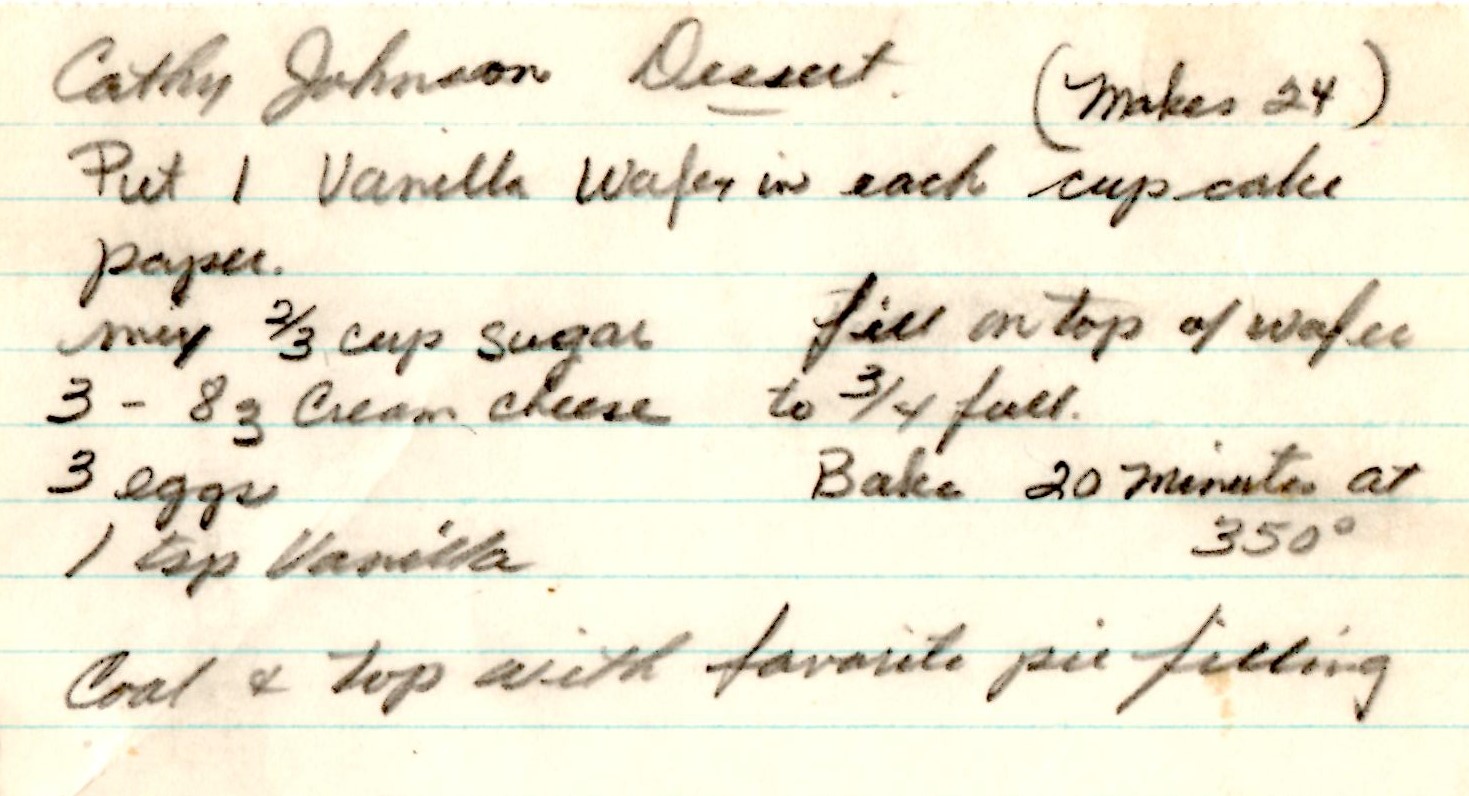 Cathy Johnson Dessert. (Makes 24)
Put 1 Vanilla Wafer in each cupcake
paper.
mix 2/3 cup sugar
3 - 8 oz Cream cheese
3 eggs
1 tsp Vanilla
fill on top of wafer
to 3/4 full.
Bake 20 Minutes at
350°
Cool & top with favorite pie filling